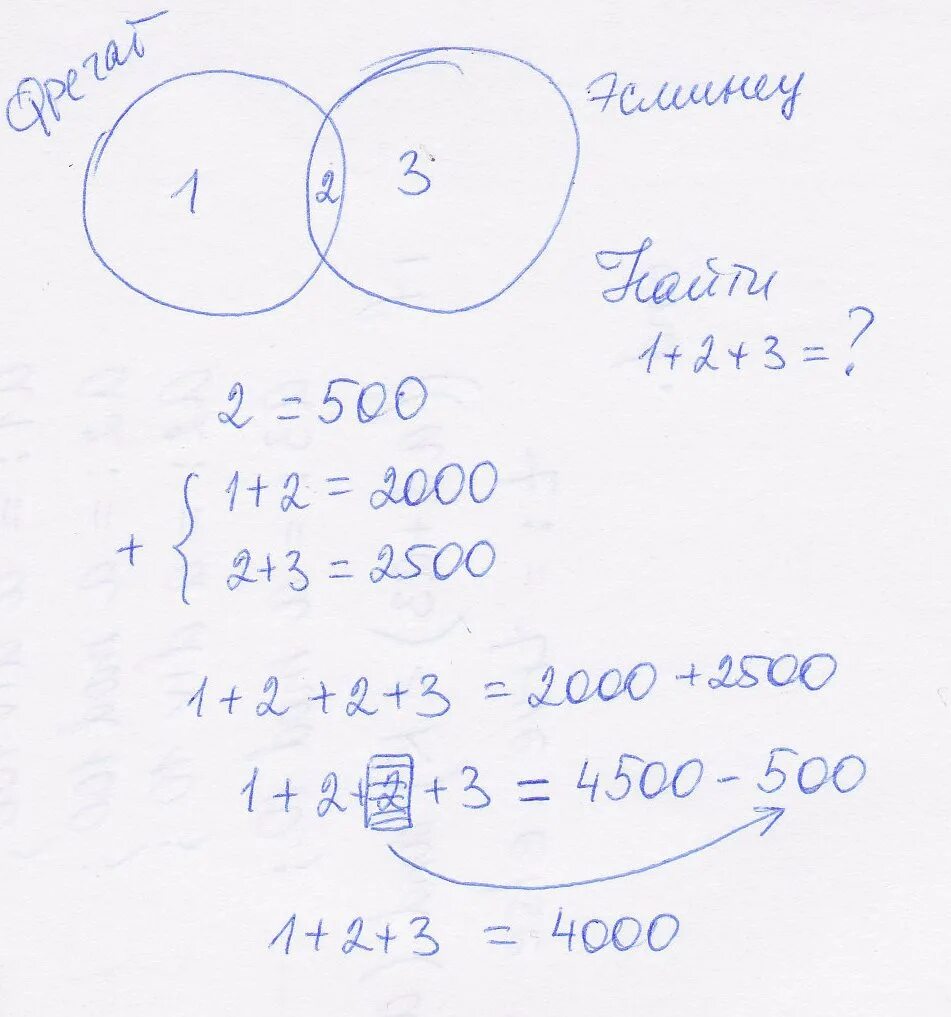 Фрегат
Эсминец
1 2 3
Найти
1+2+3=?
2 = 500
+ { 1+2 = 2000
2+3 = 2500
1+2+2+3 = 2000+2500
1+2+2+3 = 4500-500
1+2+3 = 4000